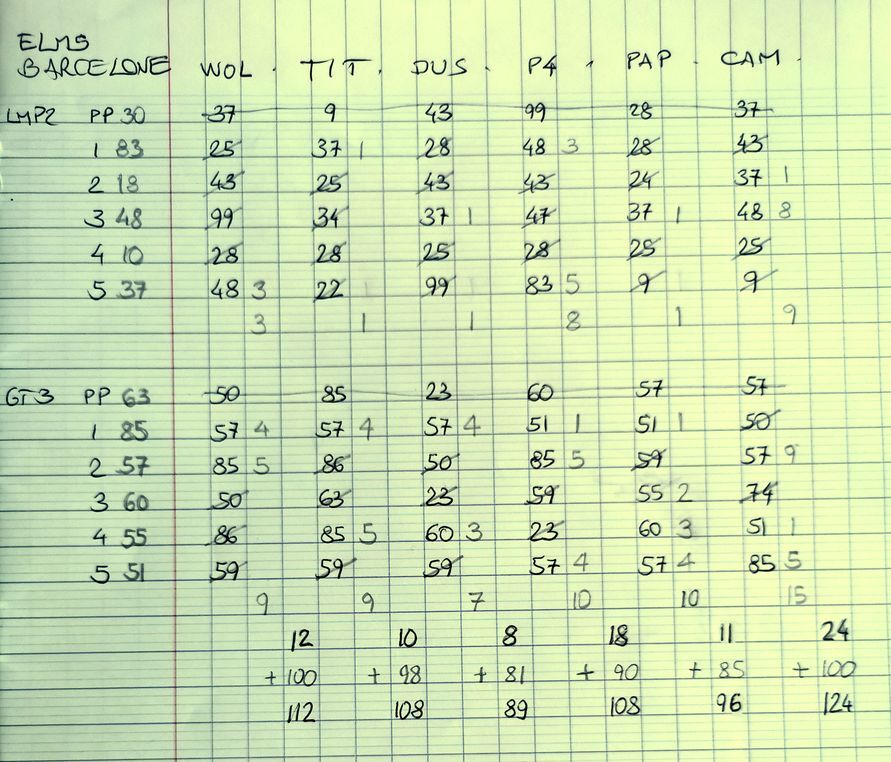 ELMS
BARCELONE WOL . TIT . DUS . P4 . PAP . CAM .
LMP2 PP 30 37 9 43 99 28 37
1 83 25 37 1 28 48 3 28 43
2 18 43 25 43 43 24 37 1
3 48 99 34 37 1 47 37 1 48 8
4 10 28 28 25 28 25 25
5 37 48 3 22 99 83 5 9 9
3 1 1 8 1 9
GT3 PP 63 50 85 23 60 57 57
1 85 57 4 57 4 57 4 51 1 51 1 50
2 57 85 5 86 50 85 5 59 57 9
3 60 50 63 23 59 55 2 74
4 55 86 85 5 60 3 23 60 3 51 1
5 51 59 59 59 57 4 57 4 85 5
9 9 7 10 10 15
12 10 8 18 11 24
+ 100 + 98 + 81 + 90 + 85 + 100
112 108 89 108 96 124